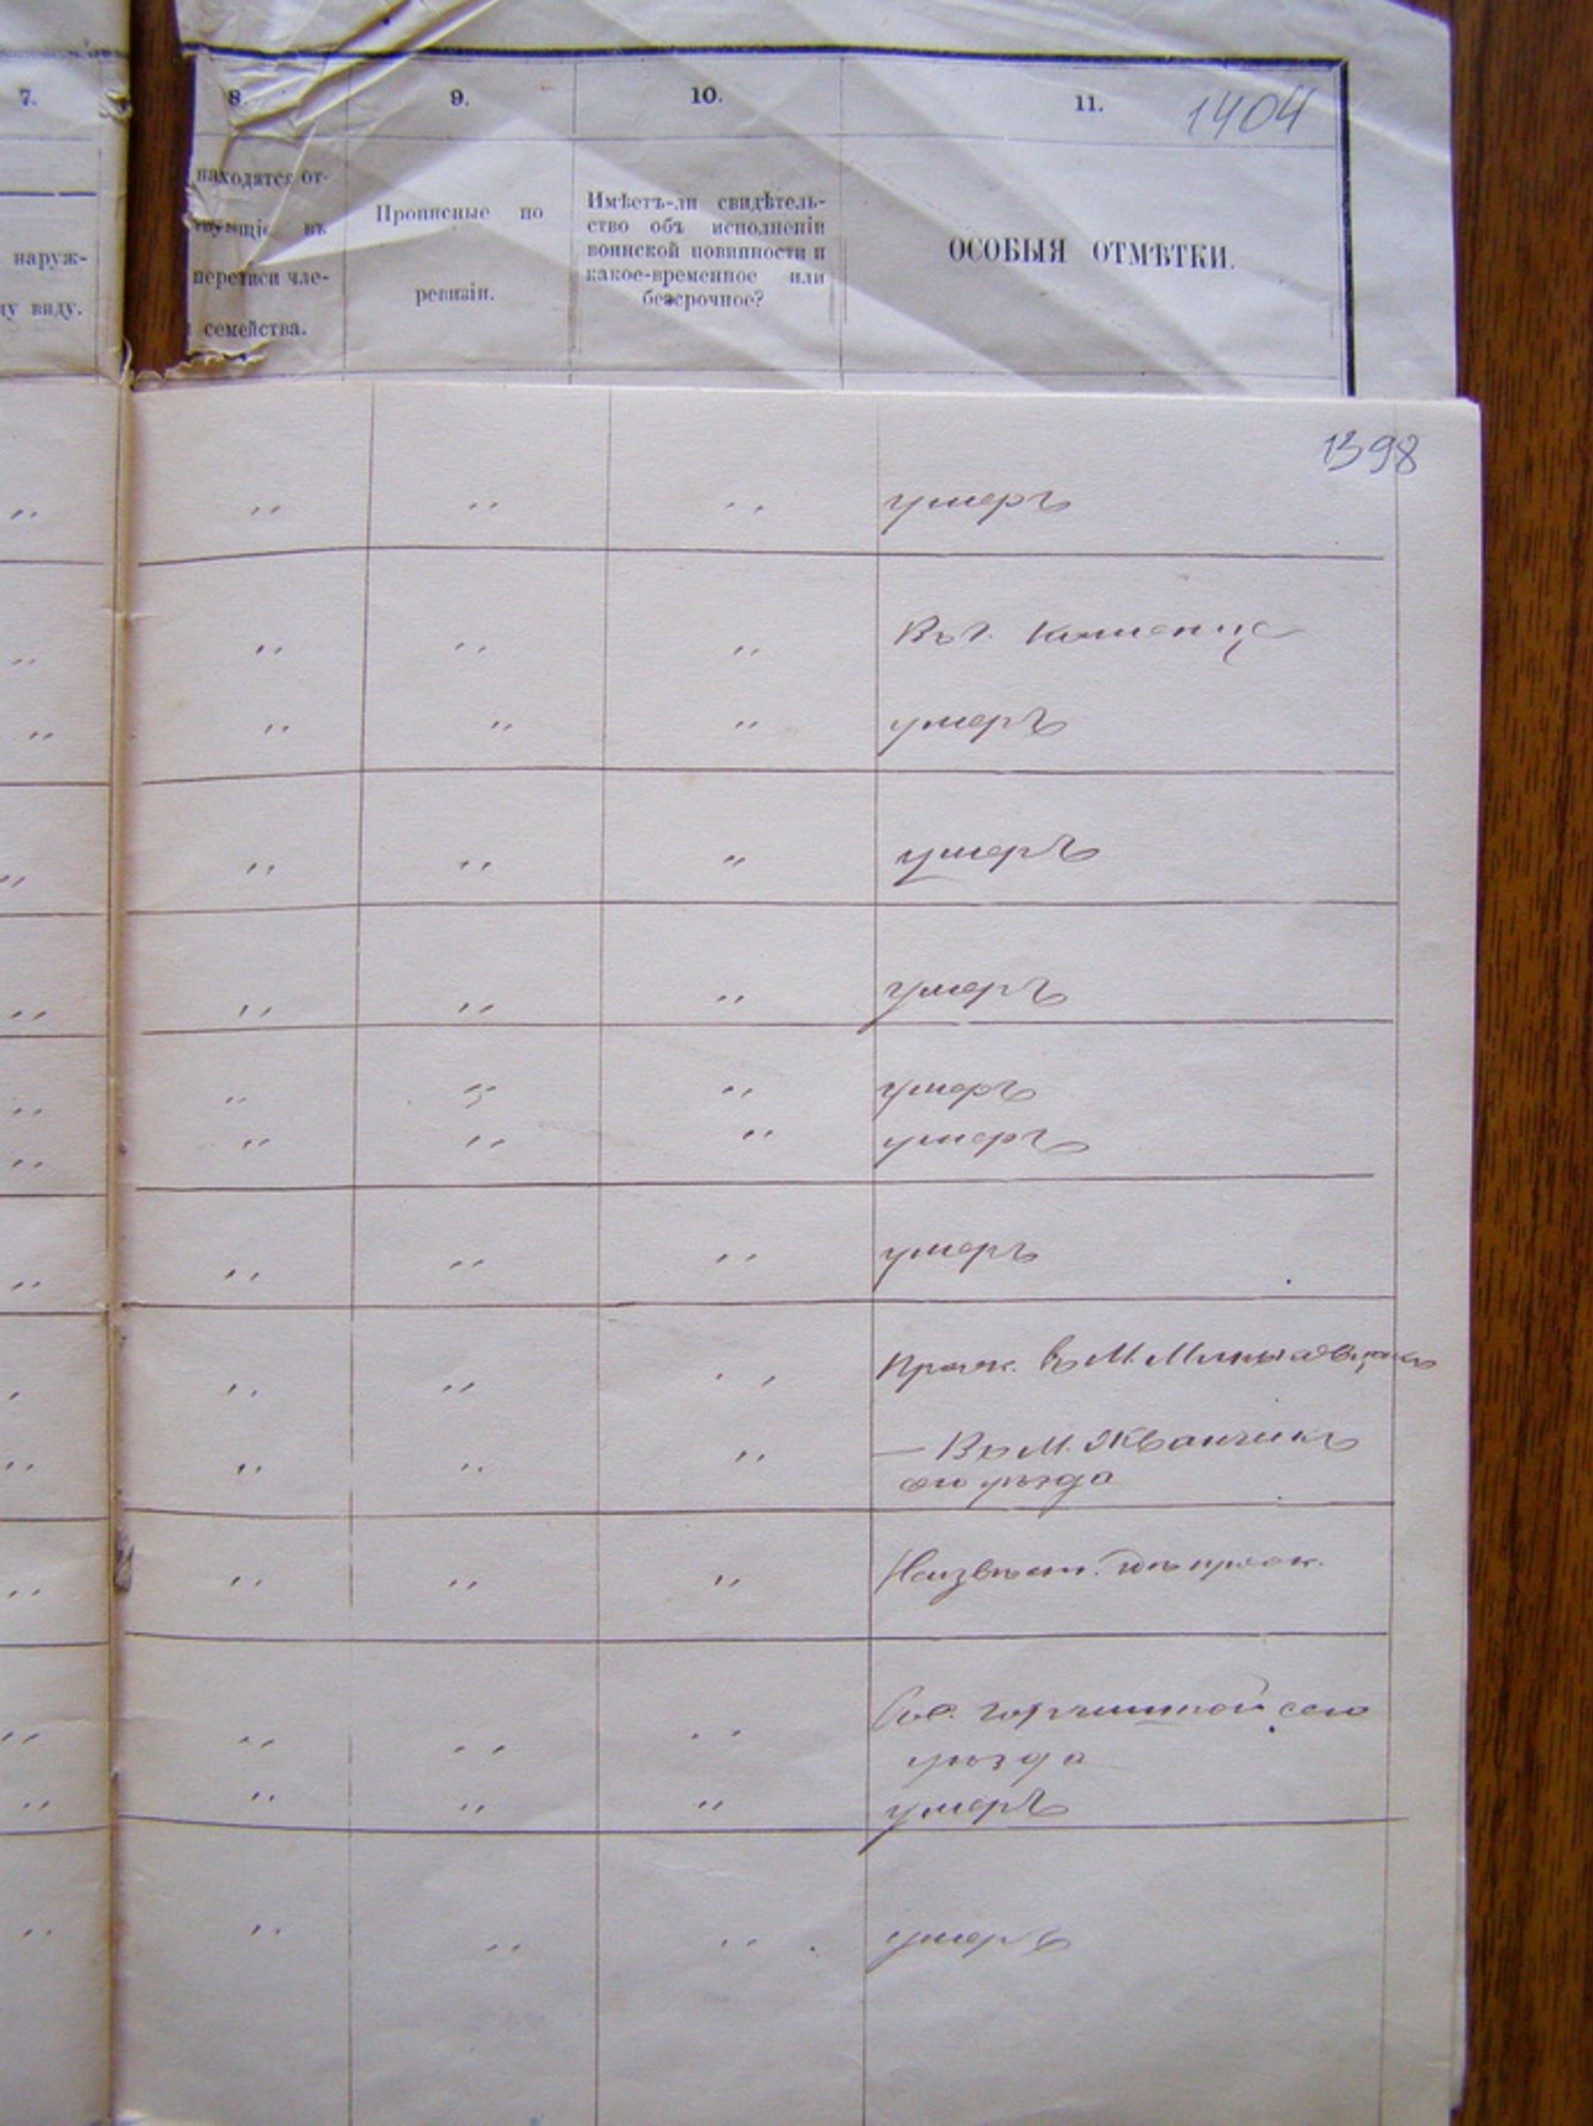 7. 8. 9. 10. 11. 1404
находятся от-
вующіе въ
переписи чле-
семейства.
наруж-
му виду.
Прописные по
ревизіи.
Имѣетъ-ли свидѣтель-
ство объ исполненіи
воинской повинности и
какое-временное или
безсрочное?
ОСОБЫЯ ОТМѢТКИ.
1398
" " " " умеръ
" " " " Въ г. Каменцѣ
" " " " умеръ
" " " " умеръ
" " " " умеръ
" " " " умеръ
" " " " умеръ
" " " " умеръ
" " " " Прож. въ М.
" " " " — Въ М. Жванчикъ
сего уѣзда
" " " " Неизвѣстн. гдѣ прож.
" " " " сего
уѣзда
" " " " умеръ
" " " " умеръ